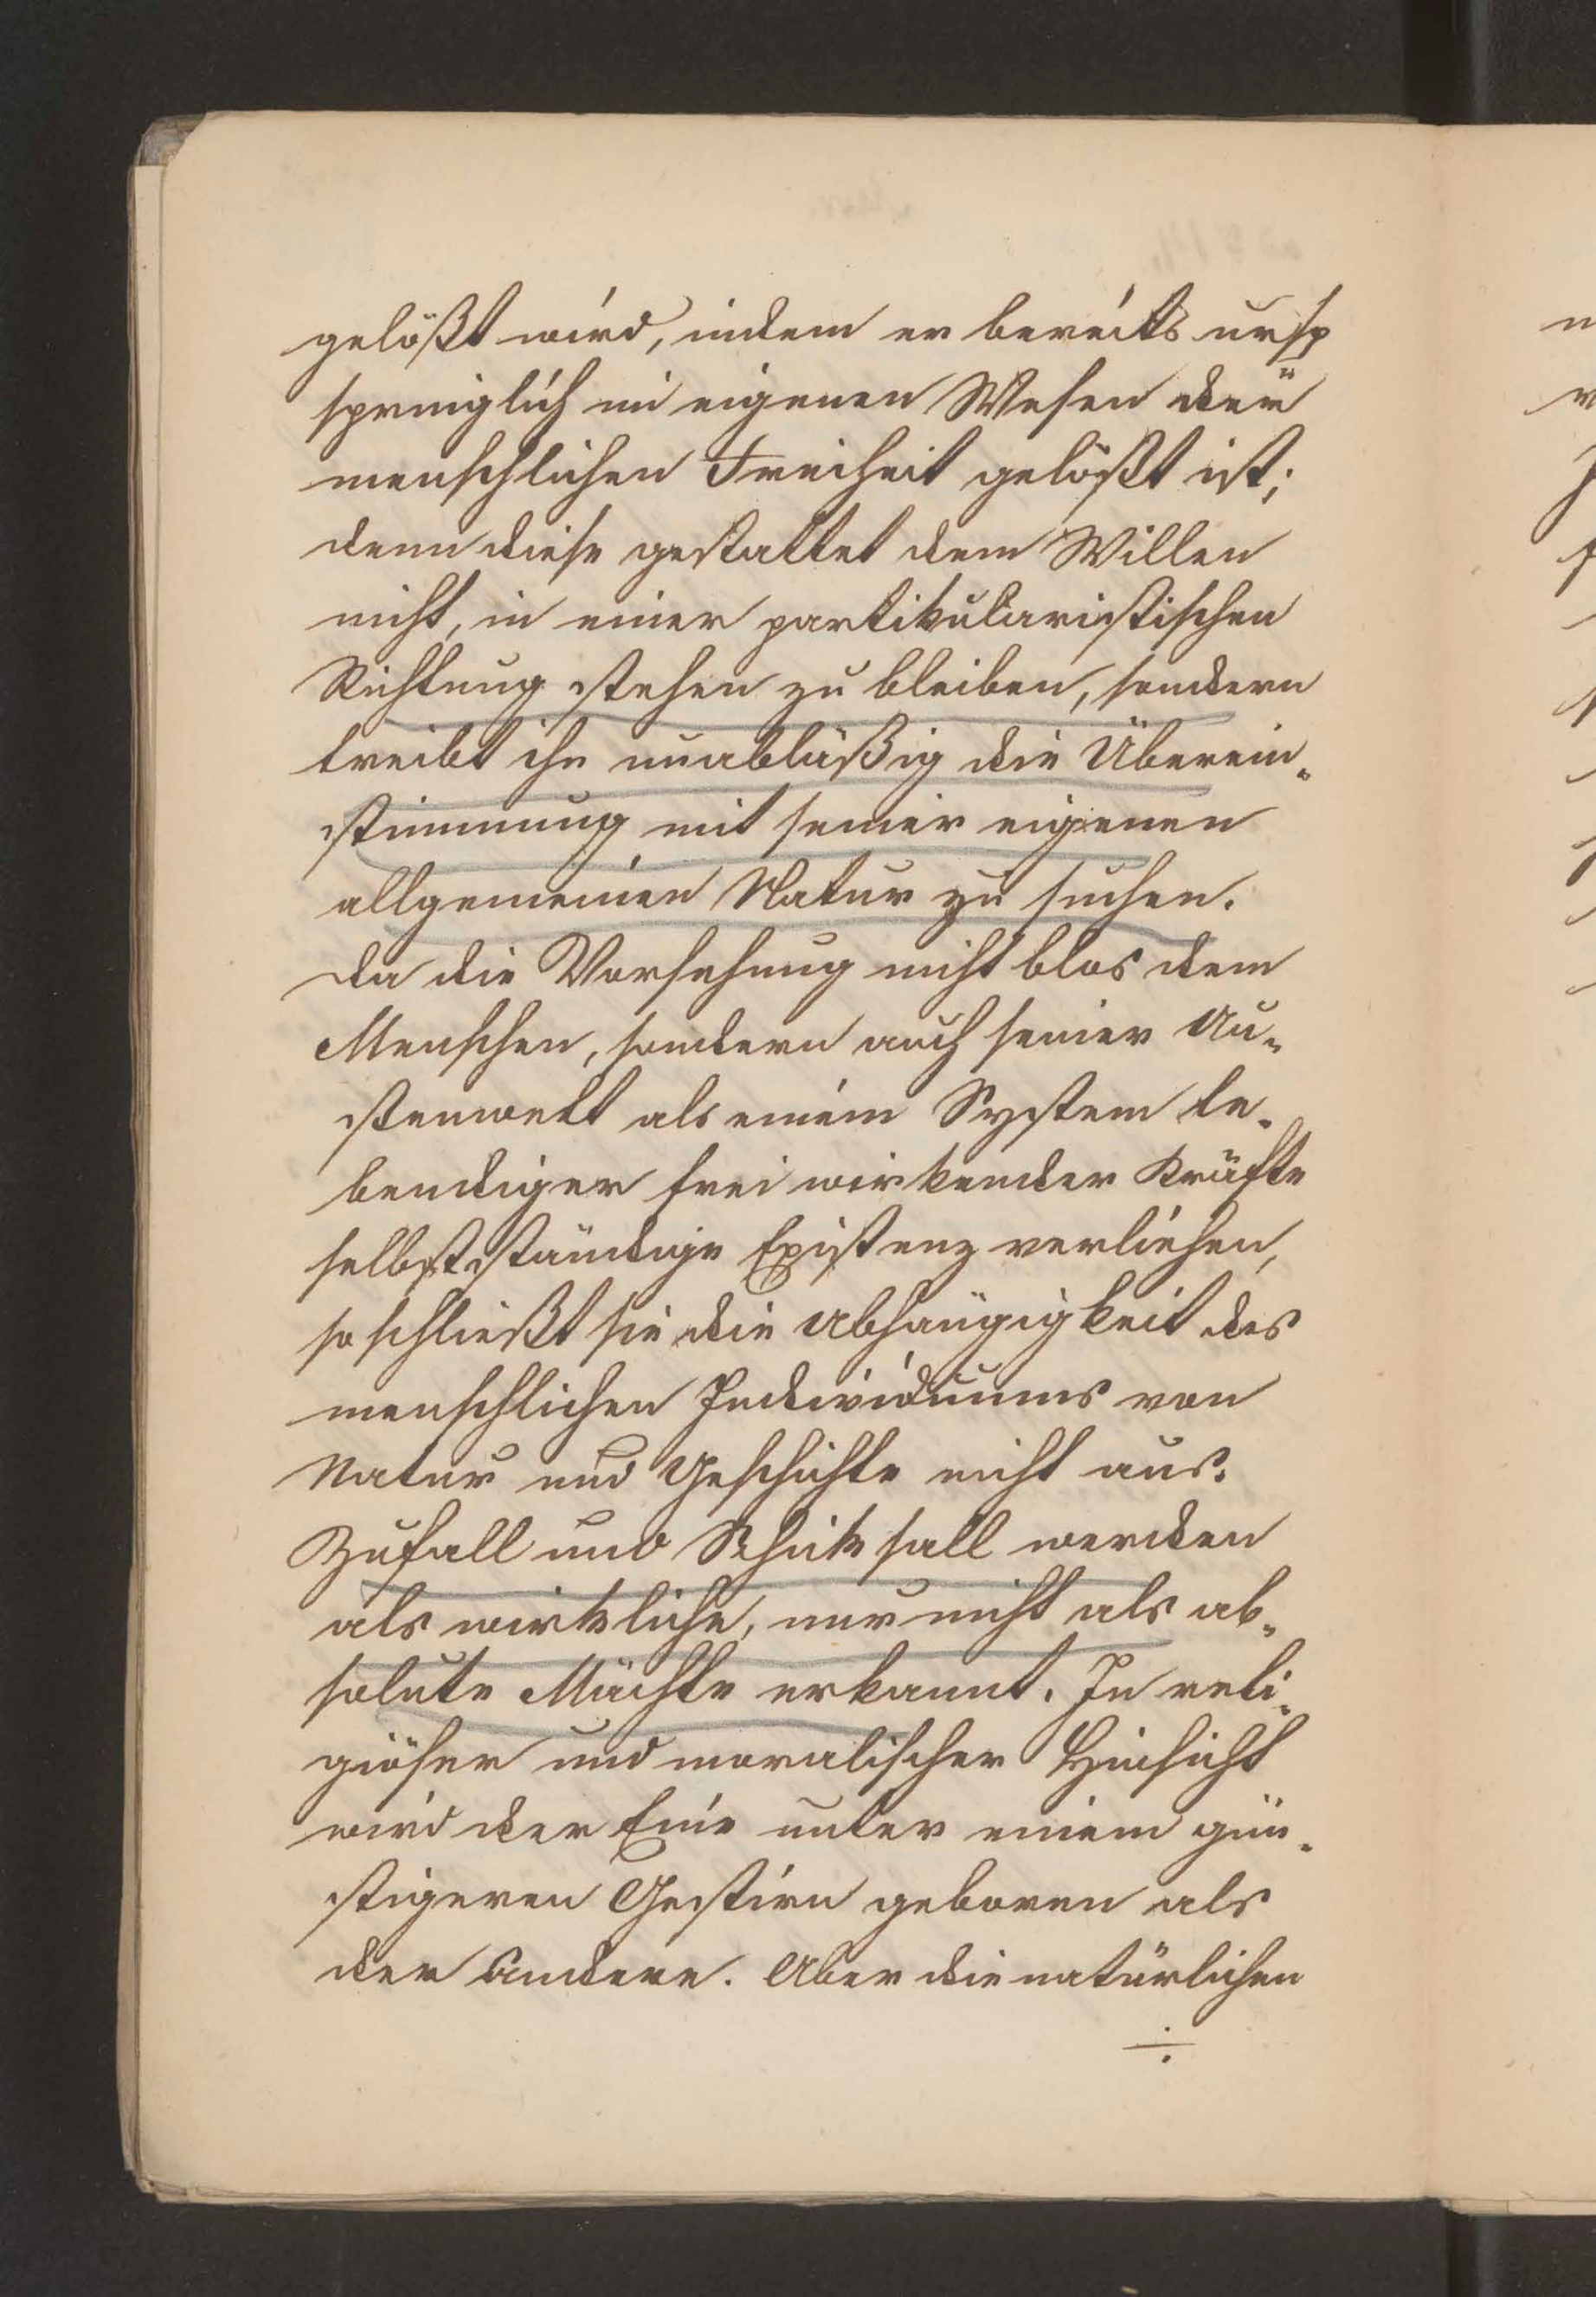 gelößt wird, indem er bereits ursp
sprünglich im eigenen Wesen der
menschlichen Freiheit gelößt ist;
denn diese gestattet dem Willen
nicht, in einer partikularistischen
Richtung stehen zu bleiben, sondern
treibt ihn unabläßig die Überein-
stimmung mit seiner eigenen
allgemeinen Natur zu suchen.
Da die Vorsehung nicht blos dem
Menschen, sondern auch seiner Au-
stenwelt als einem System le-
bendiger frei wirkender Kräfte
selbstständige Existenz verliehen,
so schließt sie die Abhängigkeit des
menschlichen Individuums von
Natur und Geschichte nicht aus.
Zufall und Schiksall werden
als wirkliche, nur nicht als ab-
solute Mächte erkannt. In reli-
giöser und moralischer Hinsicht
wird der Eine unter einem gün-
stigeren Gestirn geboren als
der Andere. Aber die natürlichen
÷